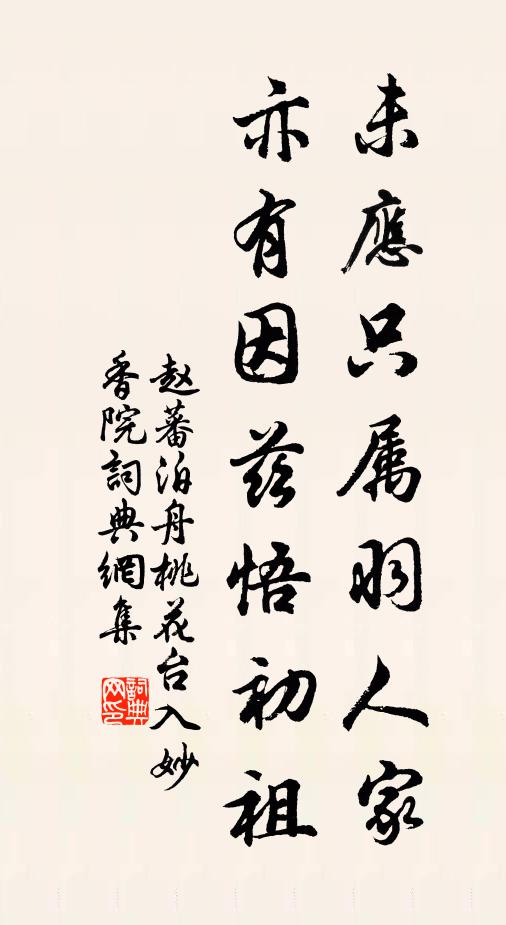 未應只属羽人家
亦有因茲悟初祖
赵蕃泊舟桃花台入妙
香院詞典網集
詞典
网印